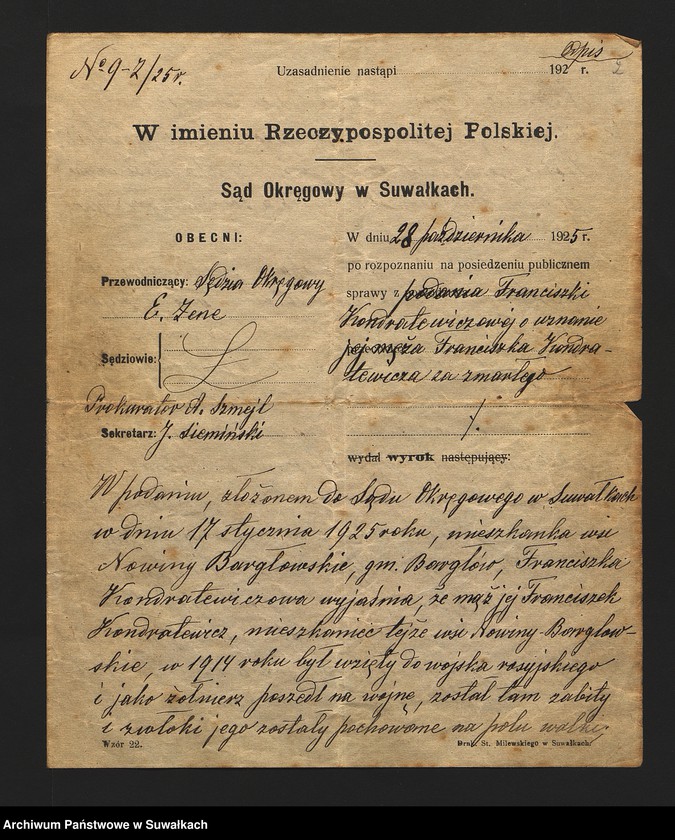 Odpis
Nº 9-2/25 r.
Uzasadnienie nastąpi 192 r. 2
W imieniu Rzeczypospolitej Polskiej.
Sąd Okręgowy w Suwałkach.
OBECNI:
Przewodniczący: Sędzia Okręgowy
E. Zene
Sędziowie:
Prokurator A. Szmejl
Sekretarz: J. Siemiński
W dniu 28 października 1925 r.
po rozpoznaniu na posiedzeniu publicznem
sprawy z podania Franciszki
Kondratewiczowej o uznanie
jej męża Franciszka Kondra-
tewicza za zmarłego
wydał wyrok następujący:
W podaniu, złożonem do Sądu Okręgowego w Suwałkach
w dniu 17 stycznia 1925 roku, mieszkanka wsi
Nowiny Bargłowskie, gm. Bargłów, Franciszka
Kondratewiczowa wyjaśnia, że mąż jej Franciszek
Kondratewicz, mieszkaniec tejże wsi Nowiny-Bargłow-
skie, w 1914 roku był wzięty do wojska rosyjskiego
i jako żołnierz poszedł na wojnę, został tam zabity
i zwłoki jego zostały pochowane na polu walki,
Wzór 22.
Druk. St. Milewskiego w Suwałkach.
Archiwum Państwowe w Suwałkach